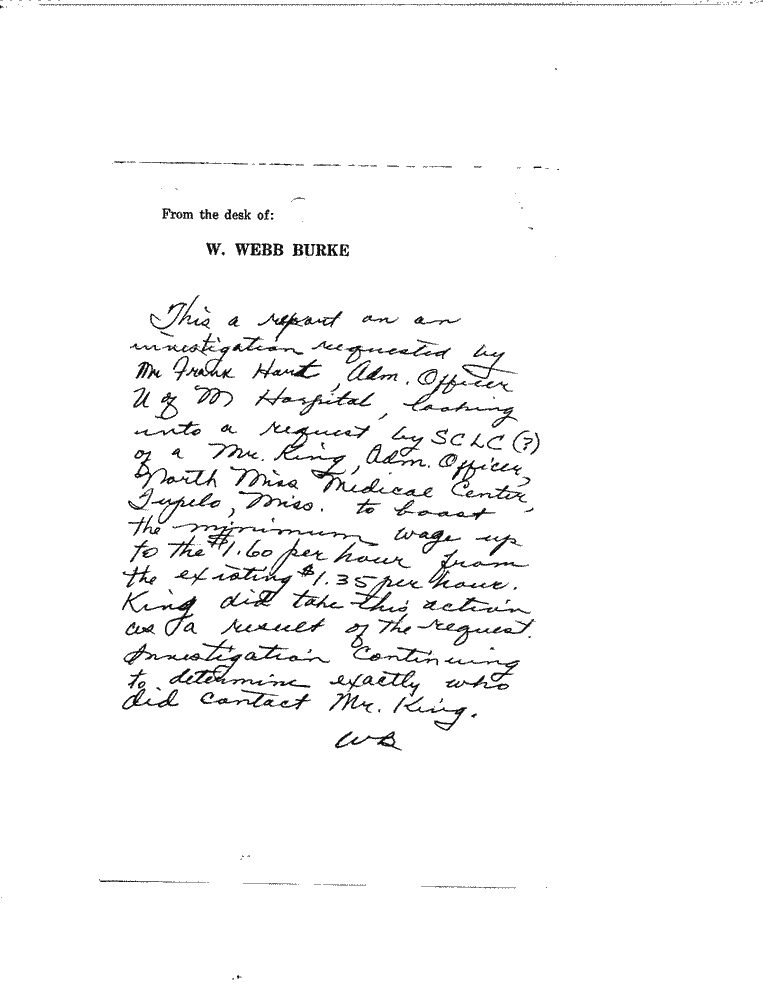 From the desk of:
W. WEBB BURKE
This a report on an
investigation requested by
Mr Frank Hart, Adm. Officer
U of M Hospital, looking
into a request by SCLC (?)
of a Mr. King, Adm. Officer,
North Miss Medical Center,
Tupelo, Miss. to boost
the minimum wage up
to the $1.60 per hour from
the existing $1.35 per hour.
King did take this action
as a result of the request.
Investigation Continuing
to determine exactly who
did contact Mr. King.
WB